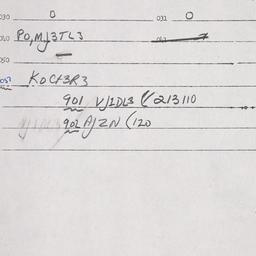 030 0 031 0
040 PO,MJ3TL3
050
057 KOCt3R3
901 V/IDL3 (/213110
902 A/ZN (120